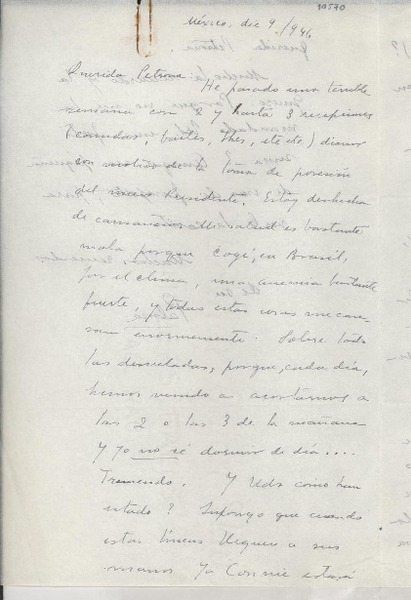 10570
México, dic 9/946
Querida Petrona:
He pasado una terrible
semana con 2 y hasta 3 recepciones
(comidas, bailes, thes, etc etc) diarios
con motivo de la toma de posesión
del nuevo Presidente. Estoy deshecha
de cansancio. Mi salud es bastante
mala porque cogí, en Brasil,
por el clima, una anemia bastante
fuerte, y todas estas cosas me can-
san enormemente. Sobre todo
las desveladas, porque, cada día,
hemos venido a acostarnos a
las 2 o las 3 de la mañana
y yo no sé dormir de día....
Tremendo. Y Uds como han
estado? Supongo que cuando
estas líneas lleguen a sus
manos ya Connie estará